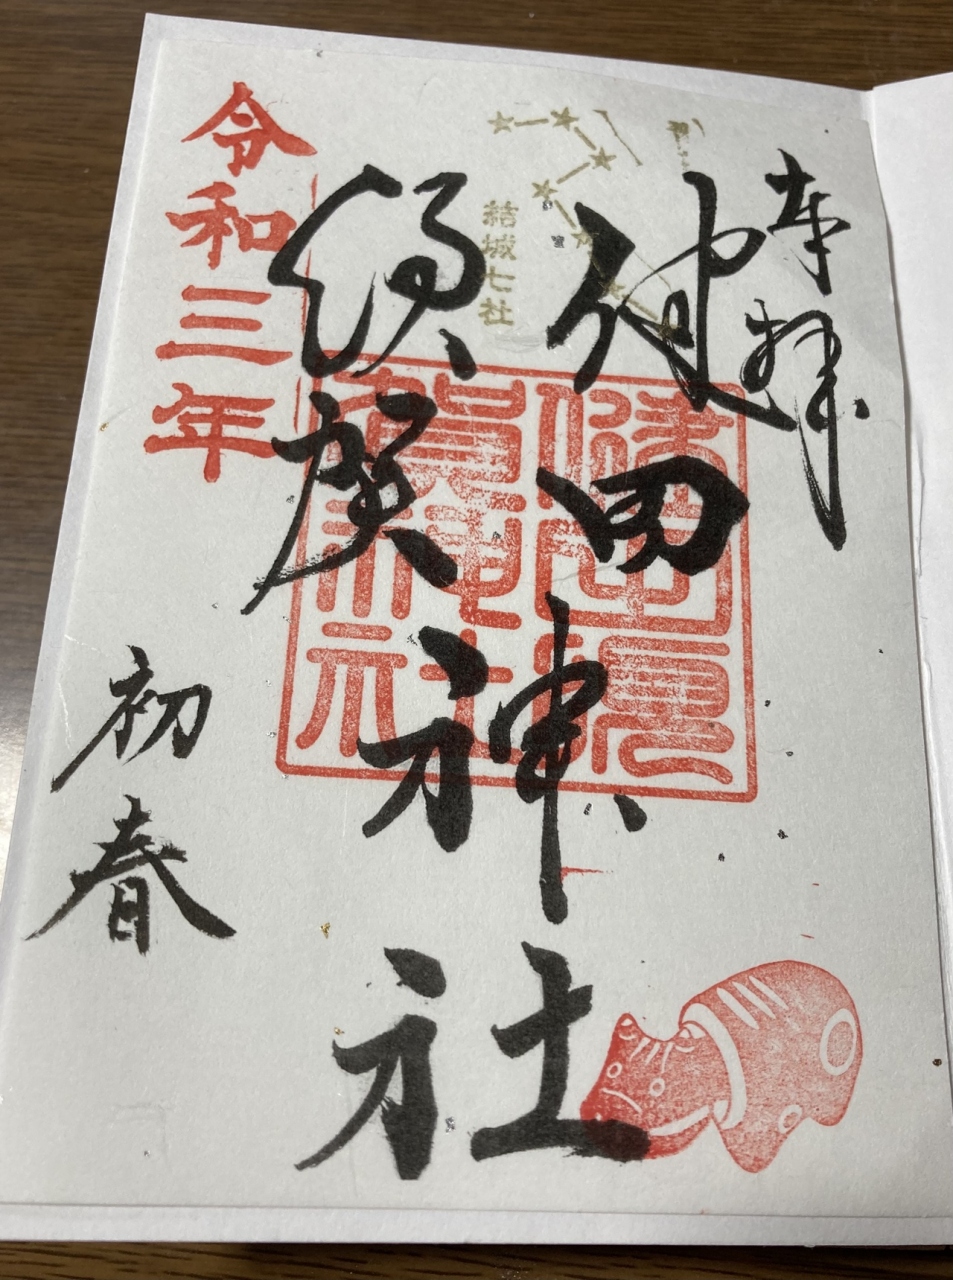 奉拝
結城七社
健田
須賀
神社
健田須
賀神社
令和三年
初春